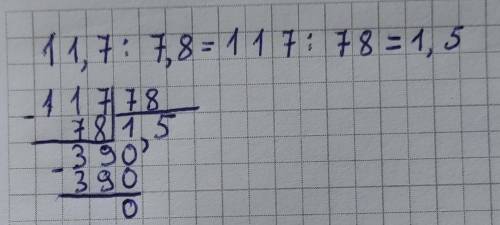 11,7 : 7,8 = 117 : 78 = 1,5
- 117 | 78
78 | 1,5
390,
- 390
0